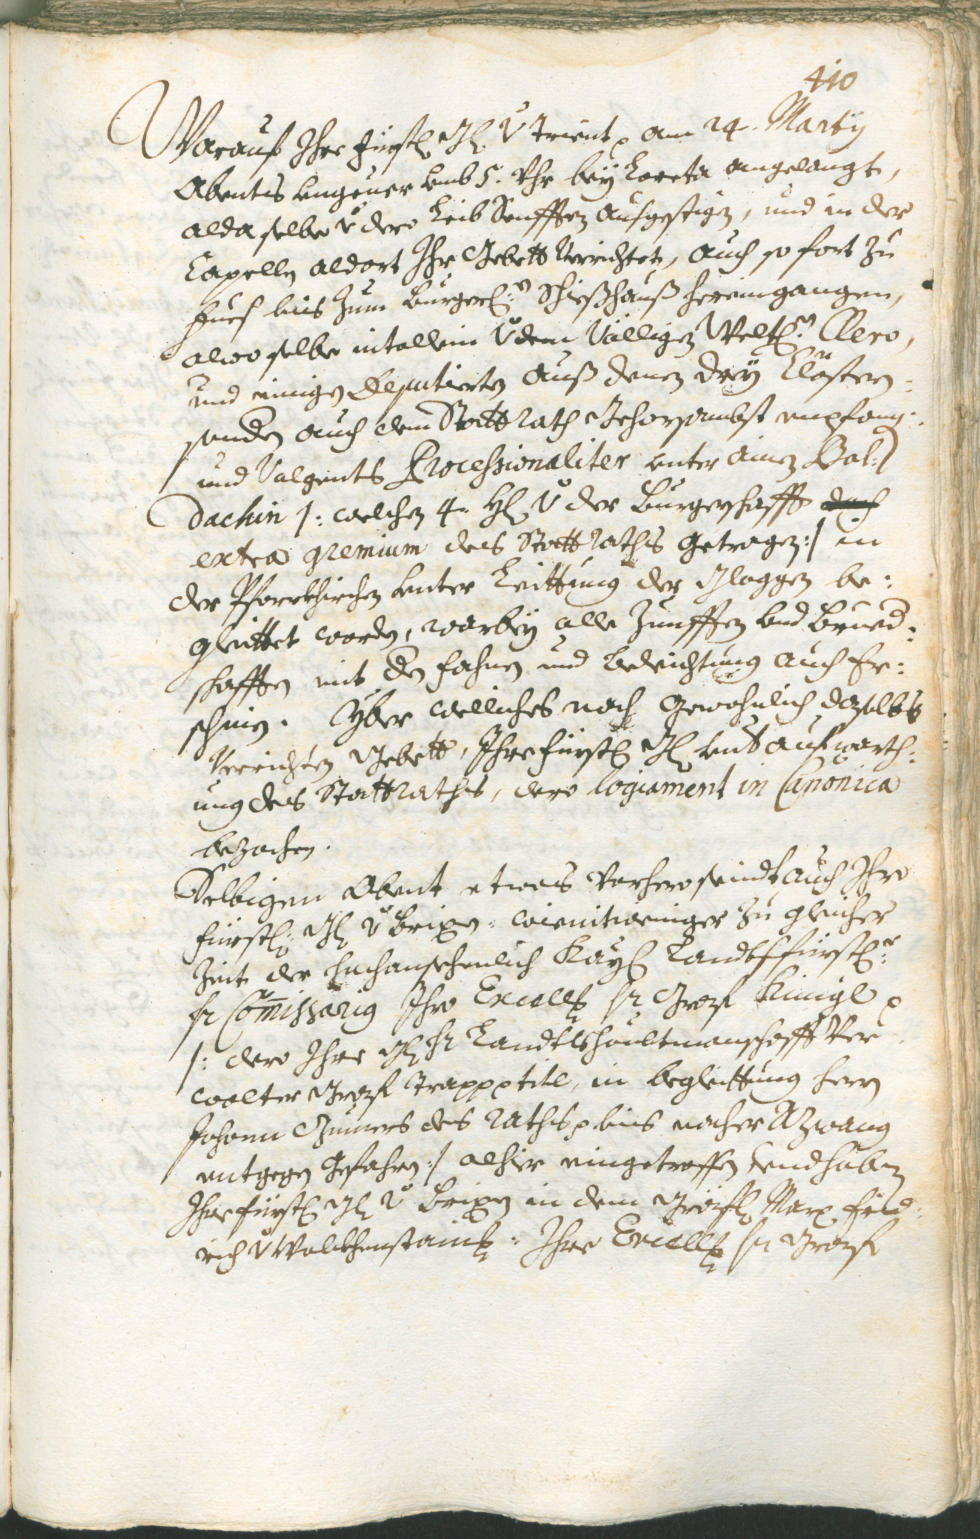 410
Warauf Ihre fürstl: Gl: v Trient p am 24. Marty
Abents ungever umb 5. Uhr bey Loreta angelangt,
alda selbe v dero Leib Senfften aufgestigen, und in der
Capelln aldort Ihr Gebett verrichtet, auch so fort zu
fues bis zum Burgerl:n Schießhauß hereingangen,
alwo selbe in allem v dem völligen Weltl:n Clero,
und einigen Deputierten auß denen drey Clöstern =
sonden auch dem Stattrath gehorsambst empfang:
und volgents Processionaliter unter ainen Bal:
dachin /: welchen 4. H: v der Burgerschafft
extra gremium des Stattraths getragen :/ in
der Pfarrkhirchen unter Leittung der Gloggen be:
gleittet worden, warbey alle Zunfften und Brued:
schafften mit den fahnen und Beleichtung auch Er:
schinen. Yber welliches nach gewohnlich daselbst
verrichten Gebett, Ihre fürstl: Gl: aufwarth:
ung des Stattraths, dero logiament in Canonica
bezochen.
Selbigen Abent etwas vorhero seindt auch Ihro
fürstl: Gl: v Brixen = wienitweniger zu gleicher
Zeit der hochansehenlich Kayl: Landtsfürstl:e
hr Commissarig Ihro Excell: hr Graf Künigl p
/: dero Ihre Gl: hr Landtshaubtmanschafft Ver
walter Graf Trapp p titl, in begleittung herrn
Johann Gumers des Raths p bis nacher Azwang
entgegen gefahren :/ alhier eingetroffen und haben
Ihre fürstl: Gl: v Brixen in dem Gräfl: Marx frid:
rich v Wolkhenstainl: = Ihre Excell: hr Graf